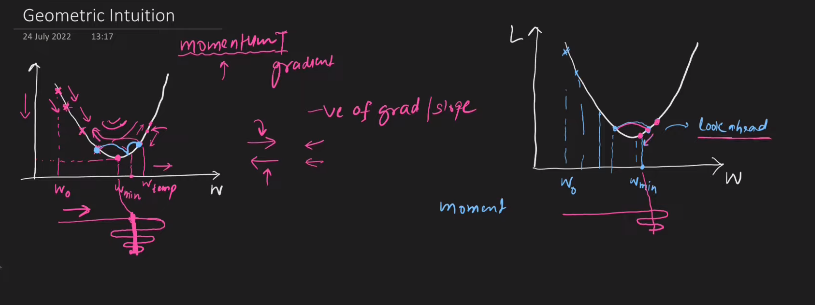 Geometric Intuition
24 July 2022 13:17
momentum↑
↑ gradient
-ve of grad/slope
w₀ wmin wtemp W
L
look ahead
w₀ wmin W
moment